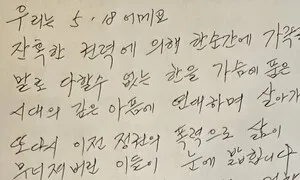 우리는 5·18 어메요
잔혹한 권력에 의해 한순간에 가족
말로 다할수 없는 한을 가슴에 품은
시대의 깊은 아픔에 연대하며 살아가
또다시 이전 정권의 폭력으로 삶이
무너져버린 이들이 눈에 밟힙니다